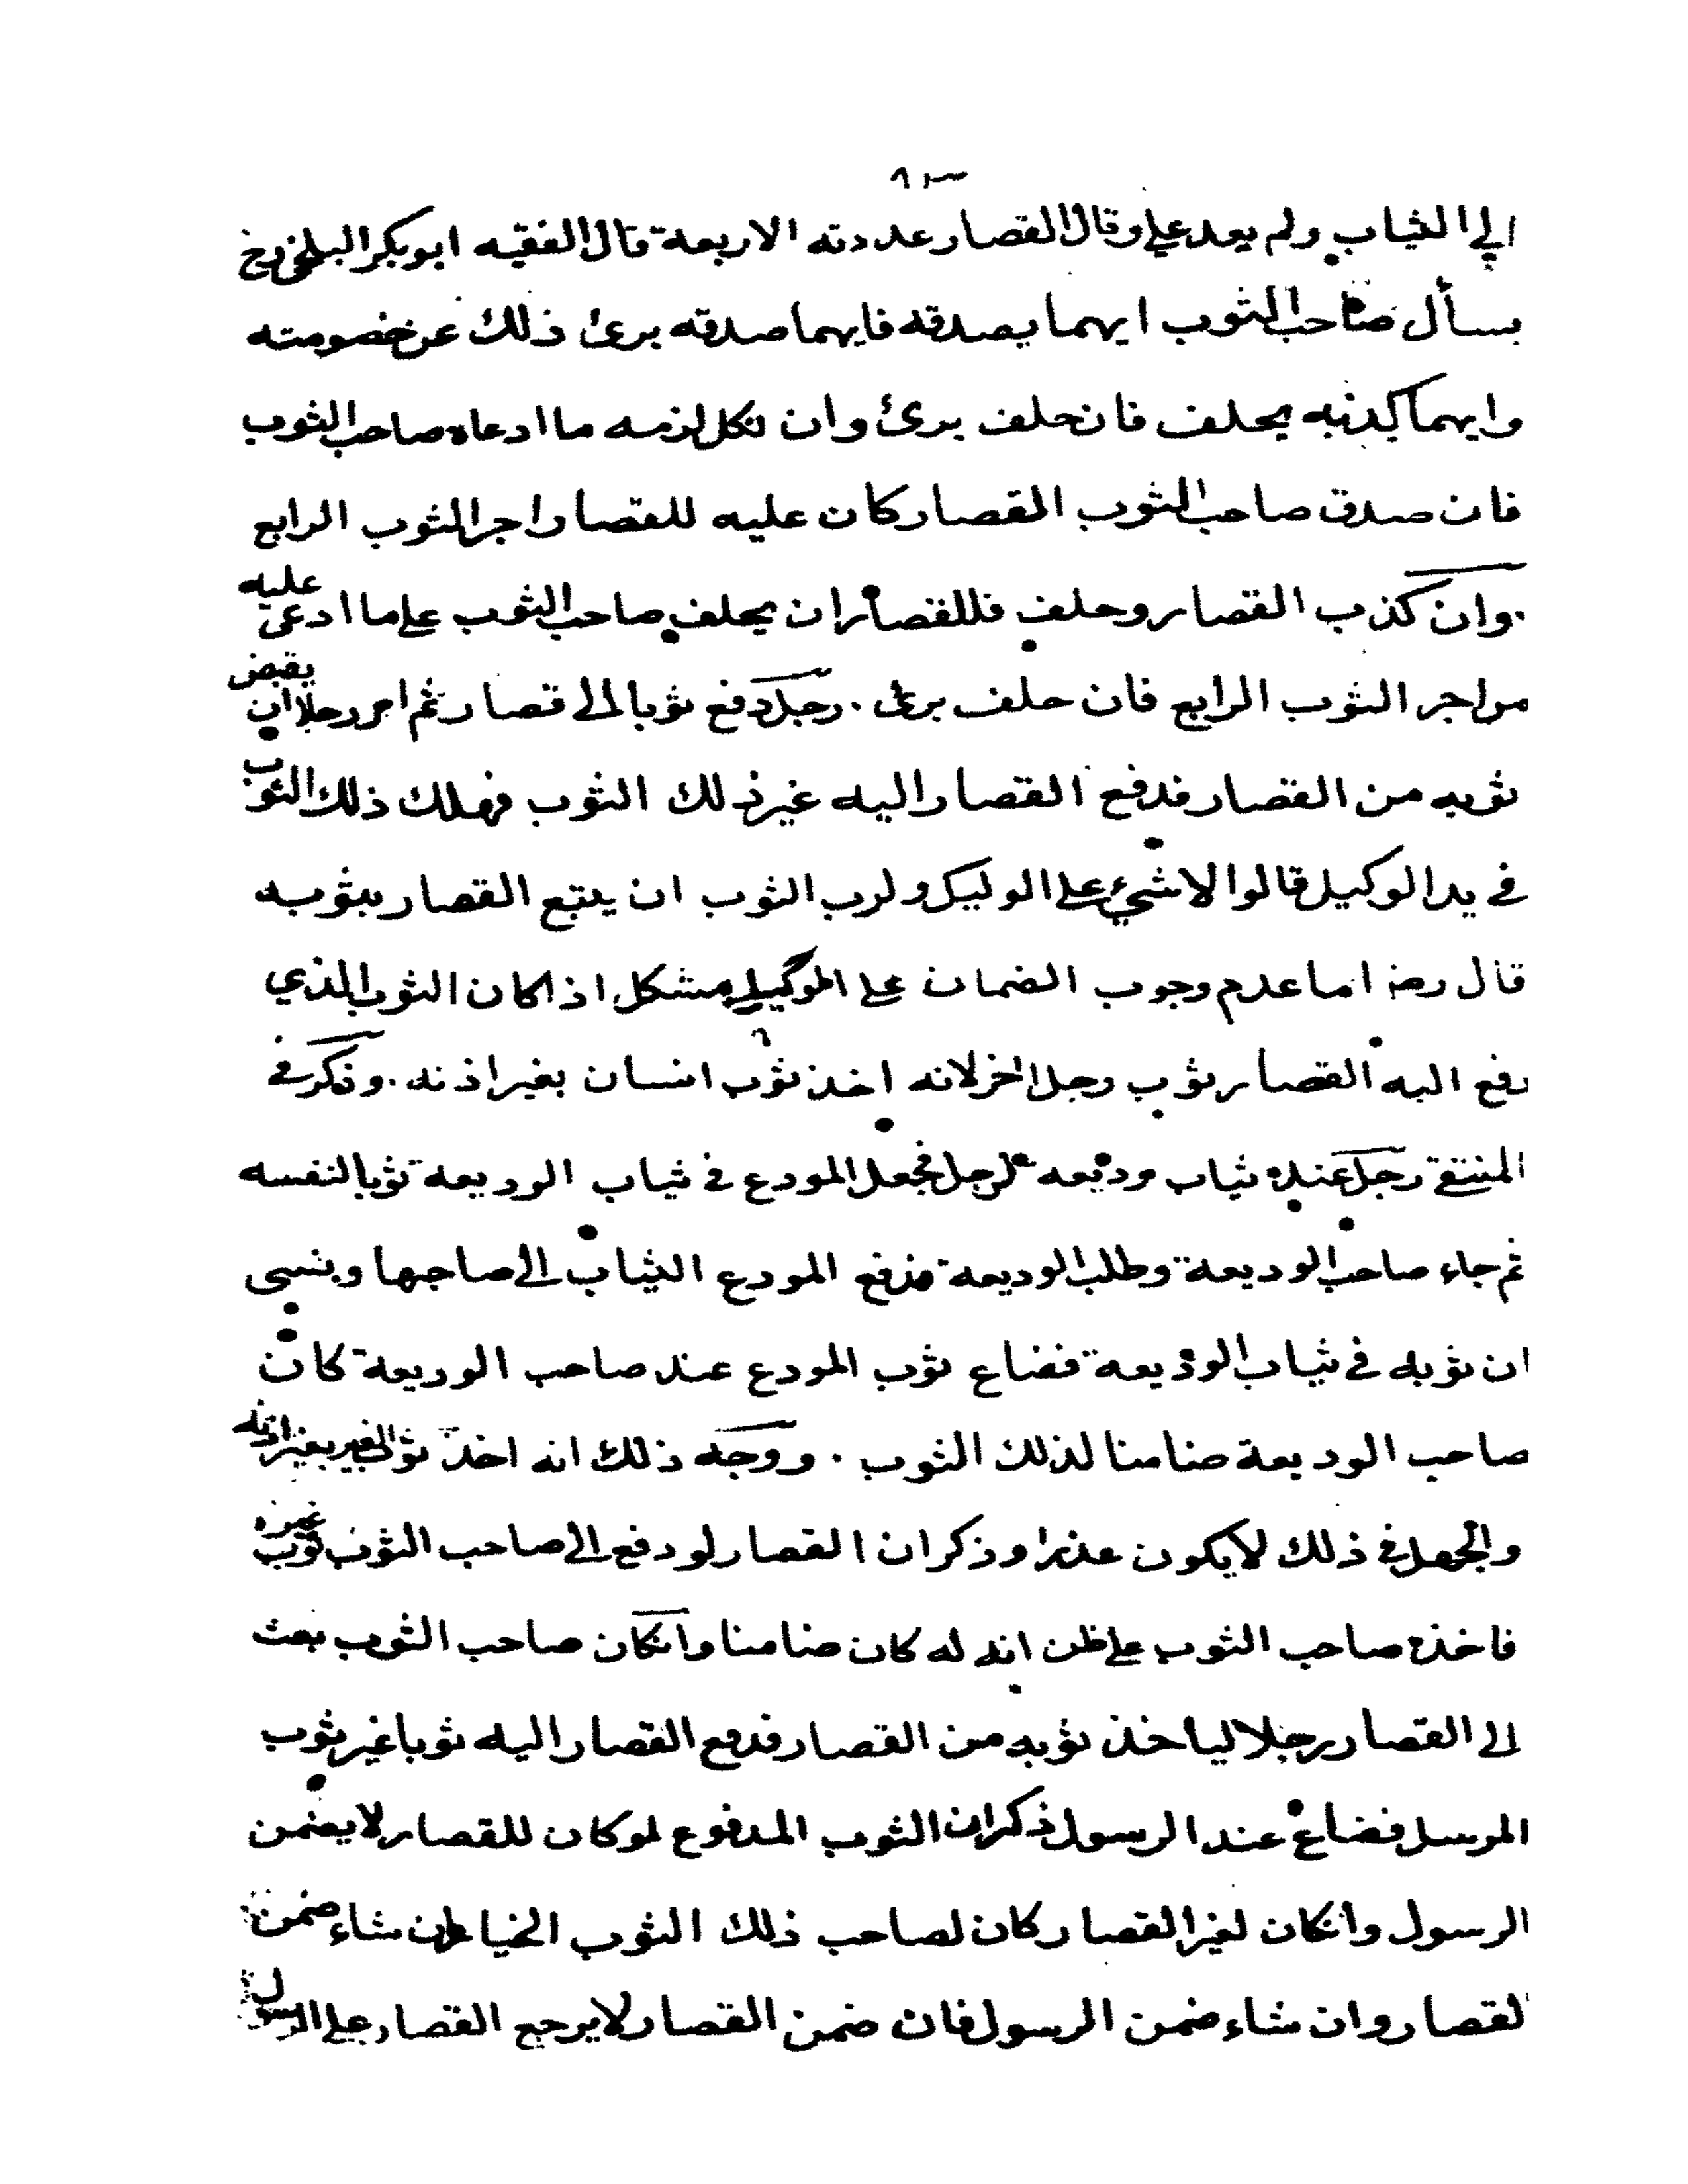 الي الثياب ولم يعد علي وقال القصار عددته الاربعة قال الفقيه ابو بكر البلخي رح
يسأل صاحب الثوب ايهما يصدقه فايهما صدقه برئ ذلك عن خصومته
وايهما كذبه يحلف فان حلف برئ وان نكل لزمه ما ادعاه صاحب الثوب
فان صدق صاحب الثوب القصار كان عليه للقصار اجر الثوب الرابع
وان كذب القصار وحلف فللقصار ان يحلف صاحب الثوب على ما ادعى عليه
من اجر الثوب الرابع فان حلف برئ . رجل دفع ثوبا الى قصار ثم امر رجلا ان يقبض
ثوبه من القصار فدفع القصار اليه غير ذلك الثوب فهلك ذلك الثوب
في يد الوكيل قالوا لا شيء على الوكيل ولرب الثوب ان يتبع القصار بثوبه
قال رضـ اما عدم وجوب الضمان على الوكيل مشكل اذا كان الثوب الذي
دفع اليه القصار ثوب رجل اخر لانه اخذ ثوب انسان بغير اذنه . وذكر في
المنتقى رجل عنده ثياب وديعه لرجل فجعل المودع في ثياب الوديعة ثوبا لنفسه
ثم جاء صاحب الوديعة وطلب الوديعة فدفع المودع الثياب الى صاحبها ونسى
ان ثوبه في ثياب الوديعة فضاع ثوب المودع عند صاحب الوديعة كان
صاحب الوديعة ضامنا لذلك الثوب . ووجه ذلك انه اخذ ثوب الغير بغير اذنه
والجهل في ذلك لا يكون عذرا وذكر ان القصار لو دفع الى صاحب الثوب ثوب غيره
فاخذه صاحب الثوب على ظن انه له كان ضامنا وان كان صاحب الثوب بعث
الى القصار رجلا لياخذ ثوبه من القصار فدفع القصار اليه ثوبا غير ثوب
المرسل فضاع عند الرسول ذكر ان الثوب المدفوع لو كان للقصار لا يضمن
الرسول وان كان لغير القصار كان لصاحب ذلك الثوب الخيار ان شاء ضمن
القصار وان شاء ضمن الرسول فان ضمن القصار لا يرجع القصار على الرسول